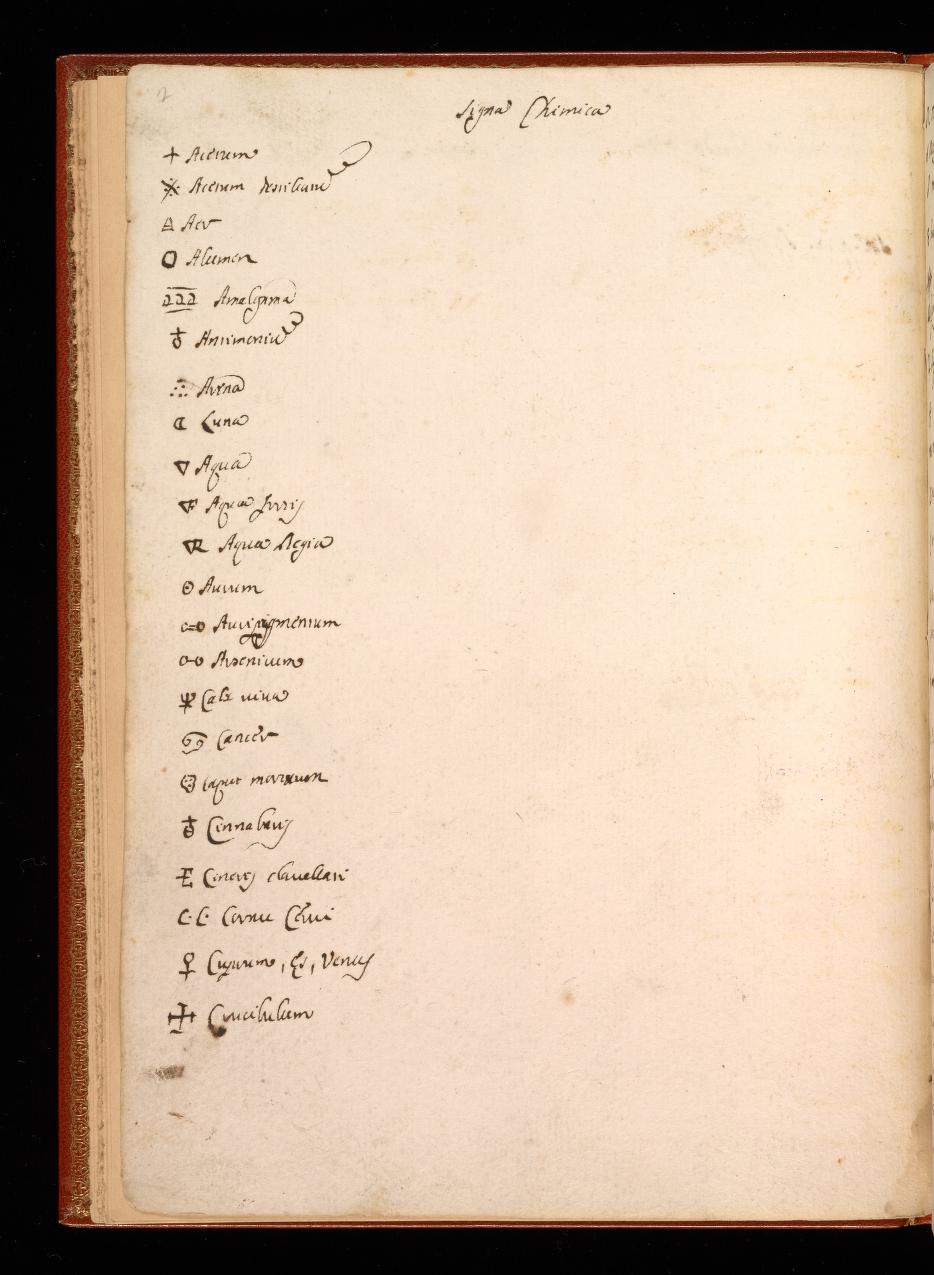 2
Signa Chimica
+ Acetum
Acetum destilatum
Aer
Alumen
aaa Amalgama
♁ Antimonium
Arena
Luna
▽ Aqua
Aqua fortis
Aqua Regia
☉ Aurum
Auripigmentum
o-o Arsenicum
Calx viva
♋ Cancer
Caput mortuum
Cinnabaris
Cineres clavellati
C. C. Cornu Cervi
♀ Cuprum, Es, Venus
Crucibulum